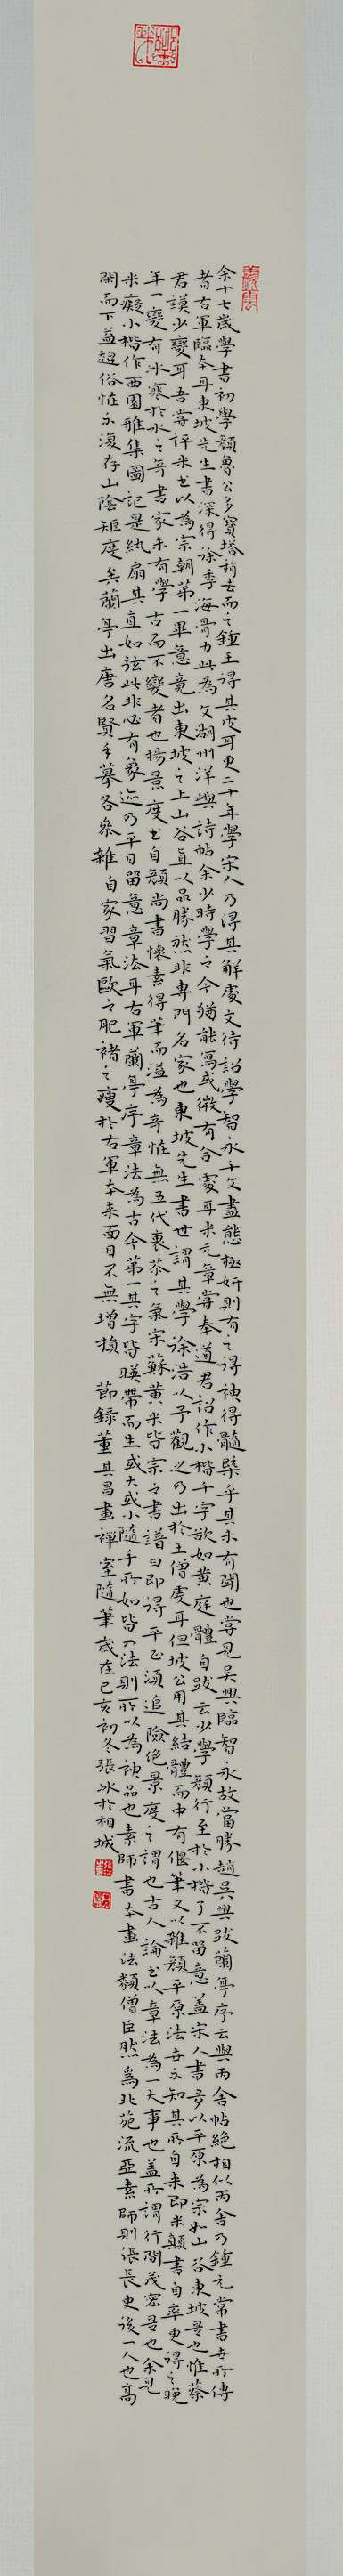 余十七歲學書初學顏魯公多寶塔稍去而之鍾王得其皮耳更二十年學宋人乃得其解處文待詔學智永千文盡態極妍則有之得神得髓槩乎其未有聞也嘗見吳興臨智永故當勝趙吳興跋蘭亭序云與丙舍帖絕相似丙舍乃鍾元常書世所傳
者右軍臨本耳東坡先生書深得徐季海骨力此為文湖州洋嶼詩帖余少時學之今猶能寫或微有合處耳米元章嘗奉道君詔作小楷千字欲如黃庭體自跋云少學顏行至於小楷了不留意蓋宋人書多以平原為宗如山谷東坡是也惟蔡
君謨少變耳吾嘗評米書以為宗朝第一畢意竟出東坡之上山谷直以品勝然非專門名家也東坡先生書世謂其學徐浩以予觀之乃出於王僧虔耳但坡公用其結體而中有偃筆又以雜顏平原法世不知其所自來即米顛書自率更得之晚
年一變有冰寒於水之奇書家未有學古而不變者也楊景度書自顏尚書懷素得筆而溢為奇怪無五代衰苶之氣宗蘇黃米皆宗之書譜曰即得平正須追險絕景度之謂也古人論書以章法為一大事也蓋所謂行間茂密是也余見
米癡小楷作西園雅集圖記是紈扇其直如弦此非必有象迹乃平日留意章法耳右軍蘭亭序章法為古今第一其字皆暎帶而生或大或小隨手所如皆入法則所以為神品也素師書本畫法類僧巨然為北苑流亞素師則張長史後一人也高
閑而下益趨俗怪不復存山陰矩度矣蘭亭出唐名賢手摹各參雜自家習氣歐之肥褚之瘦於右軍本來面目不無增損 節錄董其昌畫禪室隨筆歲在己亥初冬張冰於相城